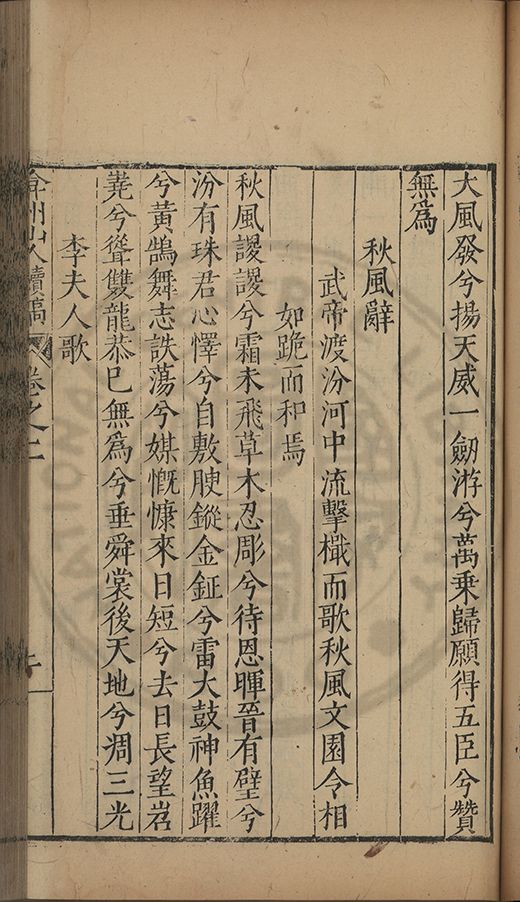 大風發兮揚天威一劒游兮萬乘歸願得五臣兮贊
無爲
秋風辭
武帝渡汾河中流擊檝而歌秋風文園令相
如跪而和焉
秋風謖謖兮霜未飛草木忍彫兮待恩暉晉有璧兮
汾有珠君心懌兮自敷腴鏦金鉦兮雷大鼓神魚躍
兮黃鵠舞志詄蕩兮媒慨慷來日短兮去日長望岧
嶤兮聳雙龍恭巳無爲兮垂舜裳後天地兮凋三光
李夫人歌
弇州山人續稿 卷之二